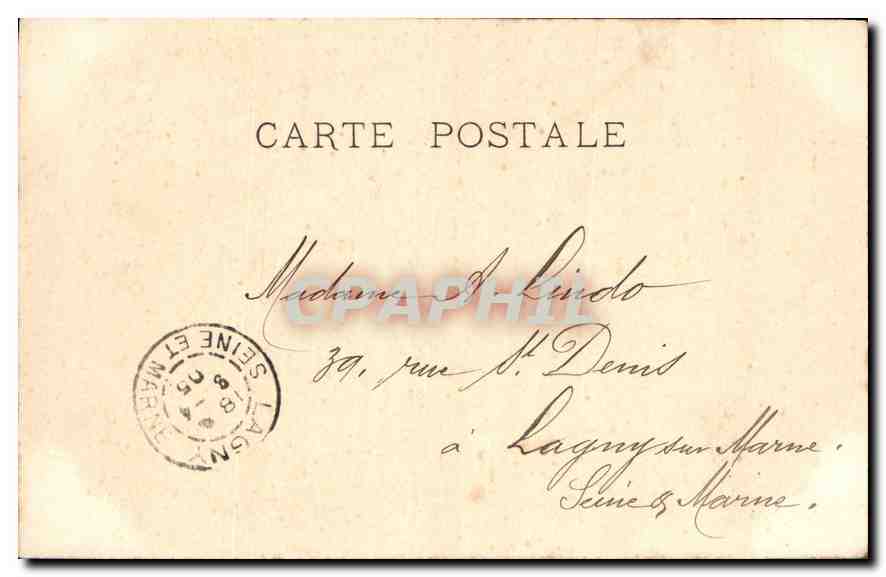 CARTE POSTALE
Madame A Lindo
39, rue St. Denis
à Lagny sur Marne.
Seine & Marne.
LAGNY
SEINE ET MARNE
CPAPHIL